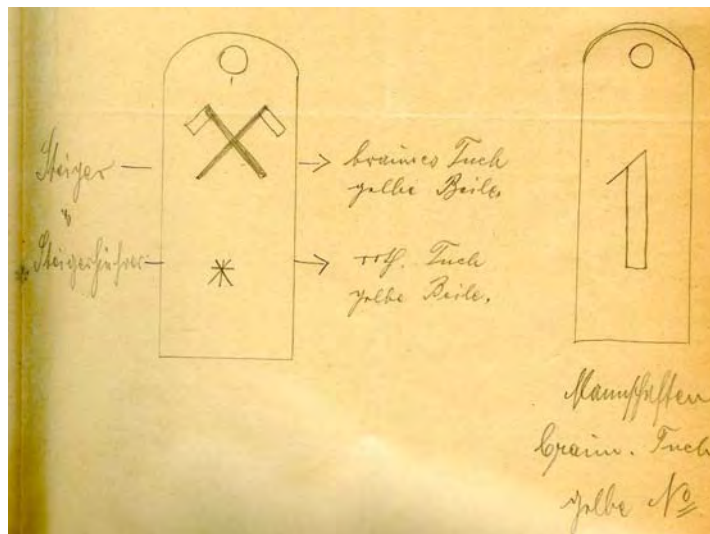 Steiger
"
* Steigerführer
braunes Tuch
gelbe Beile.
roth. Tuch
gelbe Beile.
1
Mannschaften
braun. Tuch
gelbe No